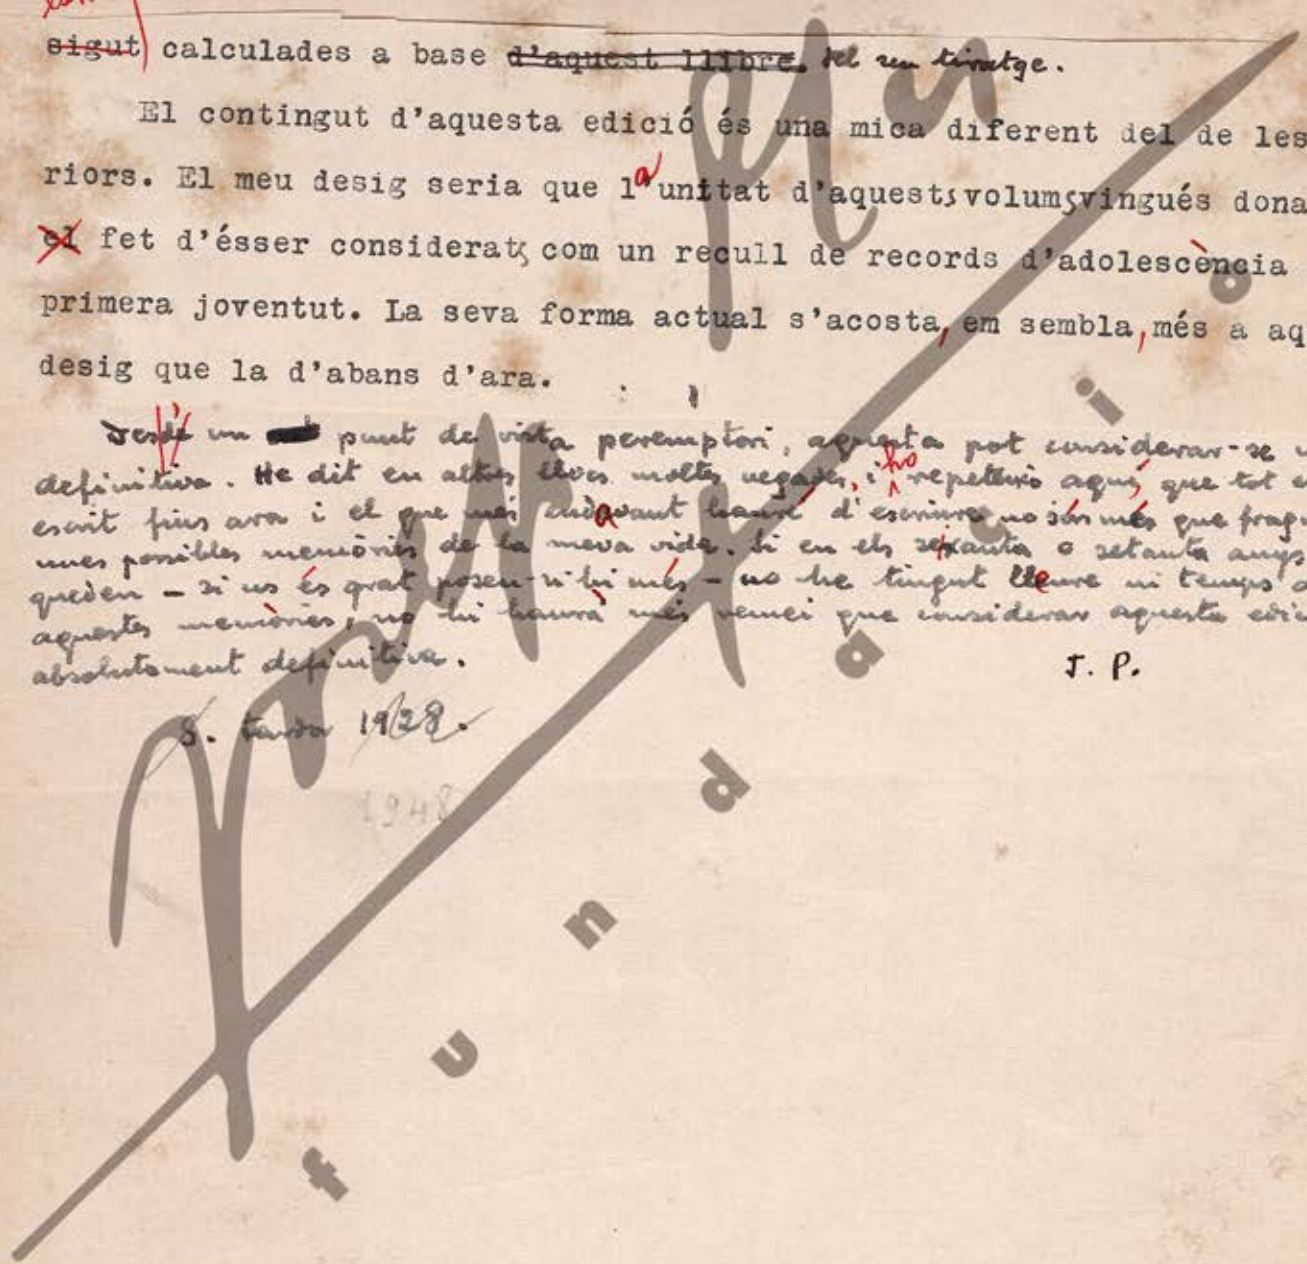 sigut calculades a base d'aquest llibre. del seu tiratge.
El contingut d'aquesta edició és una mica diferent del de les
riors. El meu desig seria que la unitat d'aquests volums vingués dona
el fet d'ésser considerats com un recull de records d'adolescència
primera joventut. La seva forma actual s'acosta, em sembla, més a aq
desig que la d'abans d'ara.
Desde un punt de vista peremptori, aquesta pot considerar-se
definitiva. He dit en altres llocs moltes vegades, i ho repeteixo aquí, que tot
escrit fins ara i el que més endavant hauré d'escriure no són més que frag
unes possibles memòries de la meva vida. Si en els seixanta o setanta anys
queden - si us és grat poseu-n'hi més - no he tingut lleure ni temps
aquestes memòries, no hi haurà més remei que considerar aquesta edic
absolutament definitiva.
J. P.
8. tardor 1928.
1948
Josep Pla
fundació